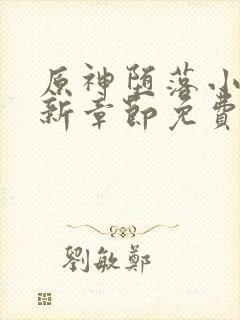 原神堕落小
新章節免費
劉敏鄭